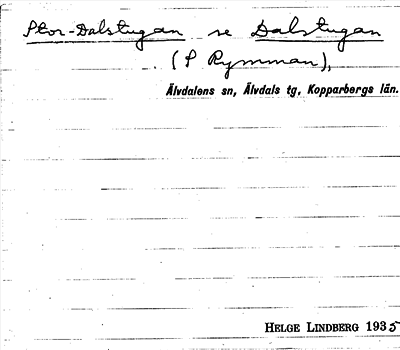 Stor-Dalstugan se Dalstugan
(S Rymman),
Älvdalens sn, Älvdals tg, Kopparbergs län.
HELGE LINDBERG 1935